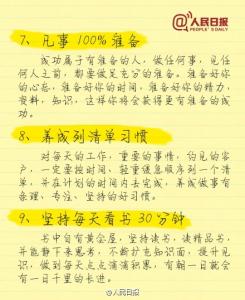 人民日报
PEOPLE'S DAILY
7、凡事100%准备
成功属于有准备的人，做任何事，见任
何人之前，都要做足充分的准备。准备好你
的心态，准备好你的时间，准备好你的精力，
资料，知识，这样你将会获得更有准备的成
功。
8、养成列清单习惯
对每天的工作，重要的事情，约见的客
户，一定要按时间、轻重缓急顺序列一个清
单，并在计划的时间内去完成，养成做事有
条理、专注、坚持的好习惯。
9、坚持每天看书30分钟
书中自有黄金屋，坚持读书，读精品书，
并能静下来思考，不断扩充知识面，提升见
识，做到每天点点滴滴积累，有朝一日就会
有一日千里的长进。
@人民日报